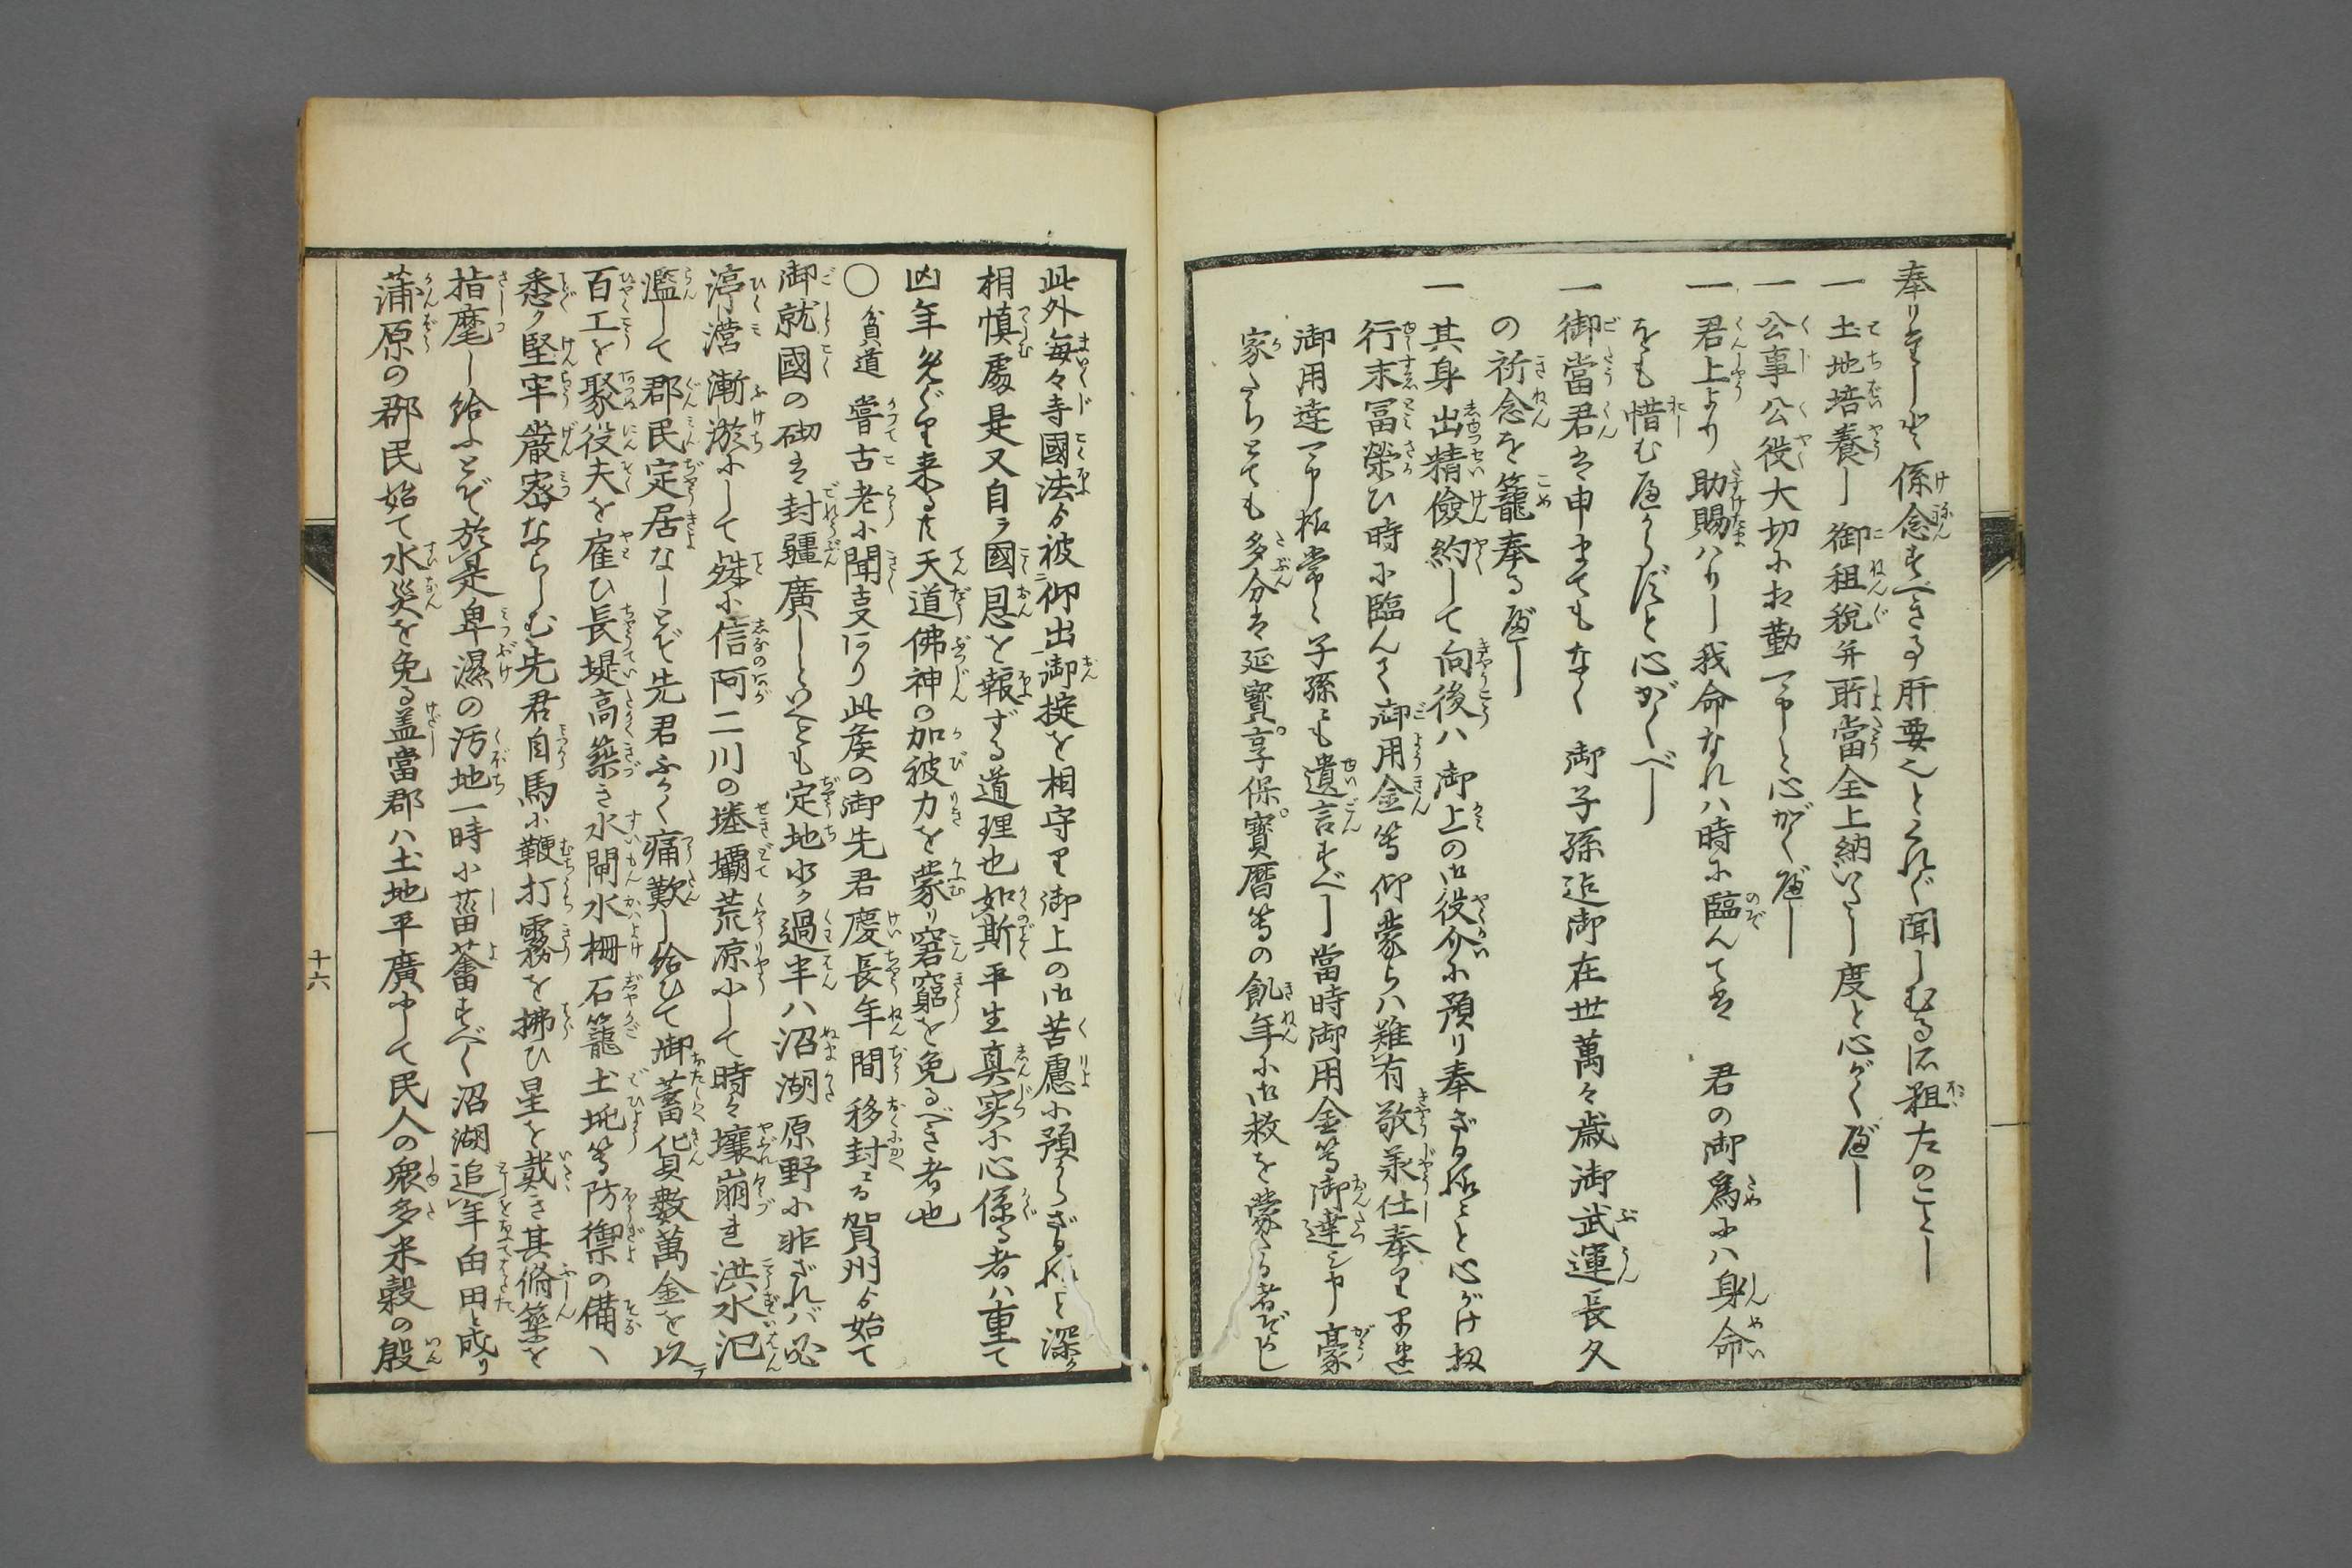 奉りまし度係念すべき事肝要也とくれぐ聞しむる所粗左のことし
一 土地培養し 御租税并所當全上納いたし度と心がく邊し
一 公事公役大切に相勤可申と心がく邊し
一 君上より助賜ハりし我命なれハ時に臨んては 君の御為にハ身命
をも惜む邊からずと心がくべし
一 御當君は申までもなく 御子孫迄御在世萬々歳御武運長久
の祈念を籠奉る邊し
一 其身出精儉約して向後ハ御上の御役介に預り奉ざる様にと心がけ扨
行末冨榮ひ時に臨んてハ御用金等仰蒙らハ難有敬承仕奉り早速
御用達可申拓常々子孫にも遺言すべし當時御用金等御達し申豪
家たりとても多分は延寳享保寳暦等の飢年に御救を蒙たる者ぞかし
此外毎々寺國法ゟ被仰出御掟を相守り御上の御苦慮に預からざる様にと深ク
相慎處是又自ラ國恩を報ずる道理也如斯平生真実に心係る者ハ重て
凶年免ぐり来る共天道佛神の加被力を蒙リ窘窮を免るべき者也
〇貧道嘗古老に聞支有り此矦の御先君慶長年間移封云々賀州ゟ始て
御就國の砌は封疆廣しといへとも定地少ク過半ハ沼湖原野に非ざれバ必
渟涔漸淤にして殊に信阿二川の堘壩荒凉にして時々壤崩れ洪水氾
濫して郡民定居なしとぞ先君ふかく痛歎し給ひて御蓄貨數萬金を以テ
百工を聚役夫を雇ひ長堤高築き水閘水柵石籠土坑等防禦の備へ
悉ク堅牢嚴密ならしむ先君自馬に鞭打霧を拂ひ星を戴き其脩築を
指麾し給ふとぞ於是卑濕の汚地一時に菑畬すべく沼湖追年甶田と成り
蒲原の郡民始て水災を免る盖當郡ハ土地平廣にして民人の衆多米穀の殷
十六